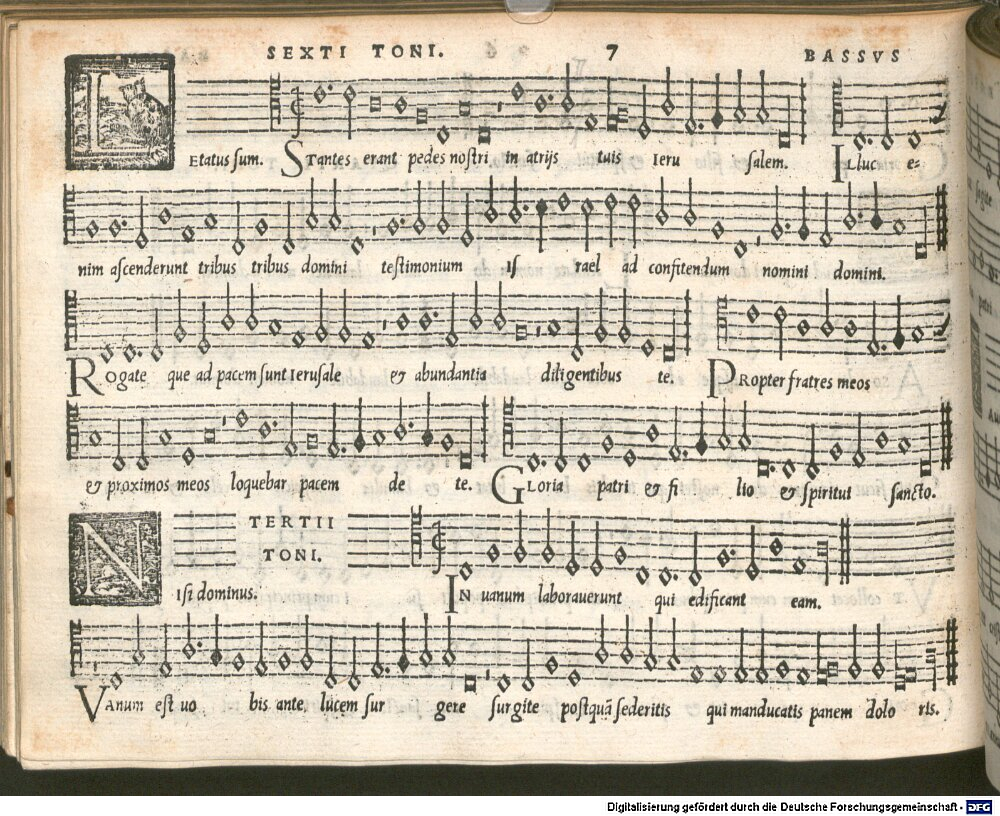 SEXTI TONI. 7 BASSVS
LEtatus sum. STantes erant pedes nostri in atrijs tuis Ieru salem. Illuc e-
nim ascenderunt tribus tribus domini testimonium Is rael ad confitendum nomini domini.
ROgate que ad pacem sunt Ierusale & abundantia diligentibus te. PRopter fratres meos
& proximos meos loquebar pacem de te. GLoria patri & fi lio & spiritui sancto.
TERTII
TONI.
NIsi dominus. IN uanum laborauerunt qui edificant eam.
VAnum est uo bis ante lucem sur gere surgite postquã sederitis qui manducatis panem dolo ris.
Digitalisierung gefördert durch die Deutsche Forschungsgemeinschaft - DFG